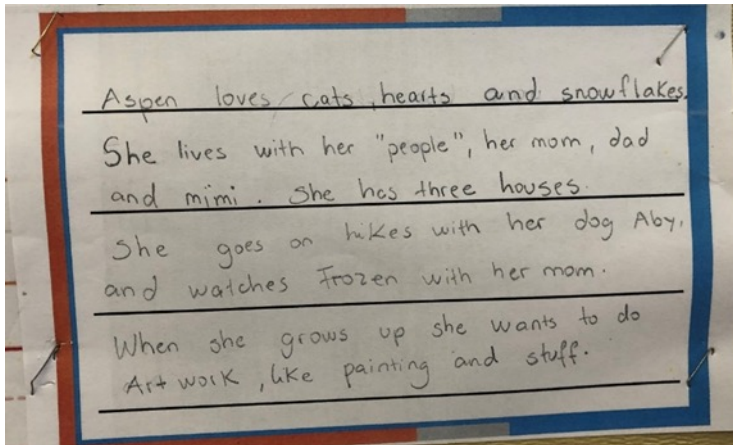 Aspen loves cats, hearts and snowflakes.
She lives with her "people", her mom, dad
and mimi. She has three houses.
She goes on hikes with her dog Aby,
and watches Frozen with her mom.
When she grows up she wants to do
Art work, like painting and stuff.